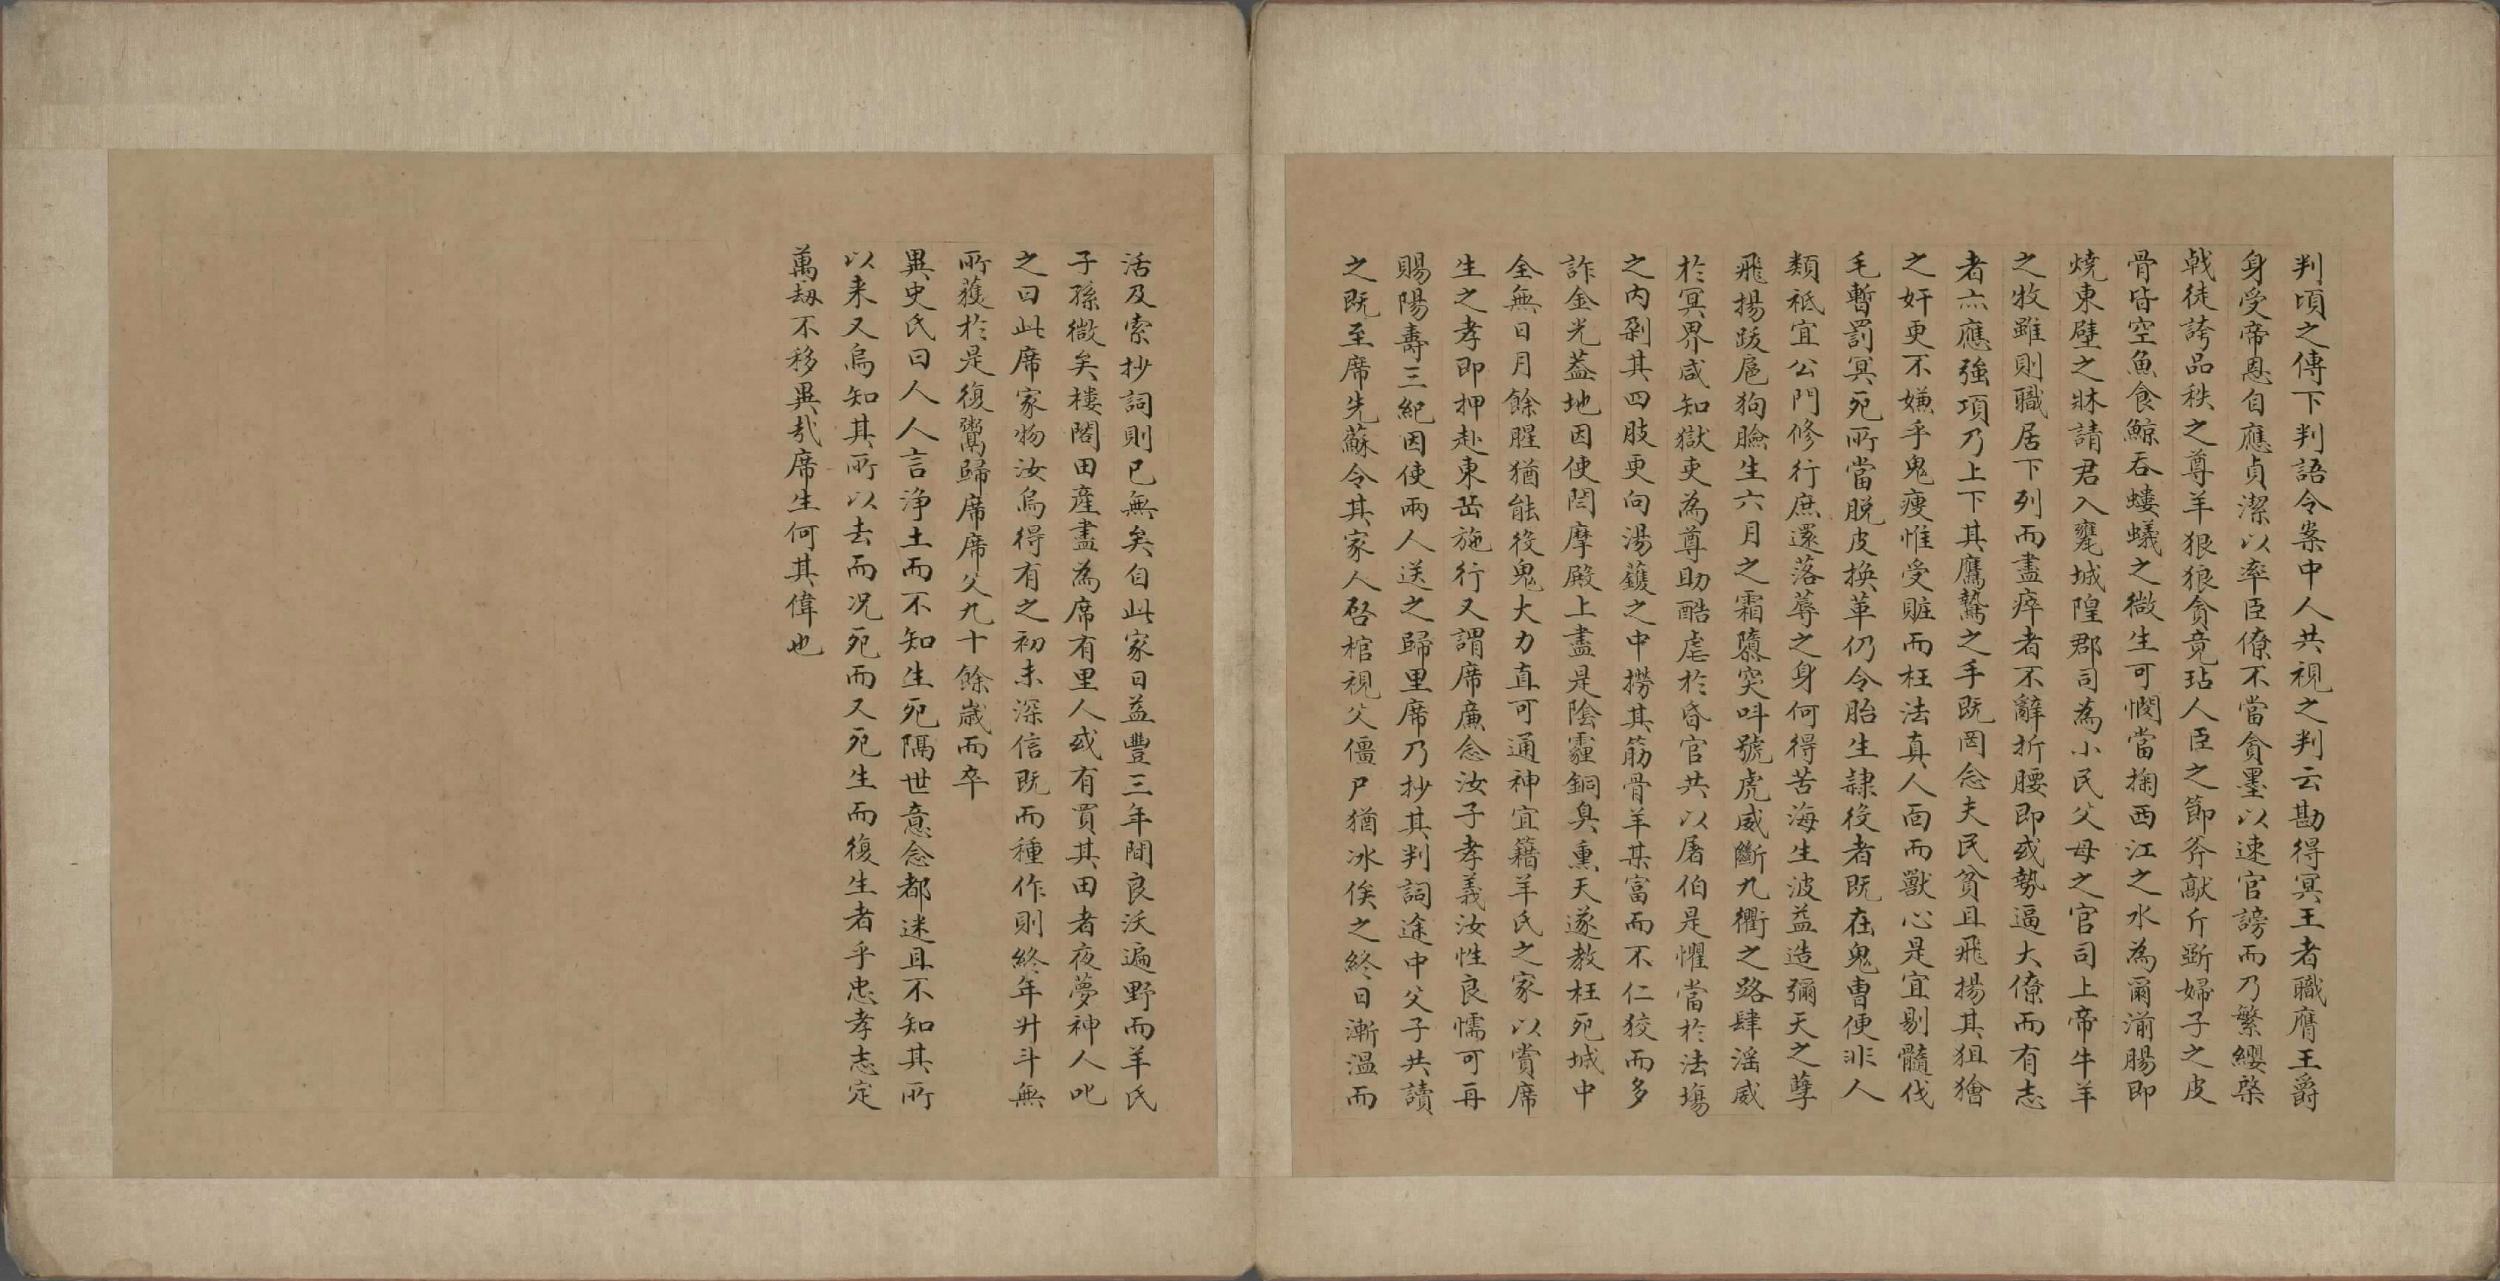 判頃之傳下判語令案中人共視之判云勘得冥王者職膺王爵
身受帝恩自應貞潔以率臣僚不當貪墨以速官謗而乃繁纓棨
戟徒誇品秩之尊羊狠狼貪竟玷人臣之節斧敲斤斲婦子之皮
骨皆空魚食鯨吞螻蟻之微生可憫當掬西江之水為爾湔腸即
燒東壁之牀請君入甕城隍郡司為小民父母之官司上帝牛羊
之牧雖則職居下列而盡瘁者不辭折腰即或勢逼大僚而有志
者亦應強項乃上下其鷹鷙之手既罔念夫民貧且飛揚其狙獪
之奸更不嫌乎鬼瘦惟受贓而枉法真人面而獸心是宜剔髓伐
毛暫罰冥死所當脫皮換革仍令胎生隸役者既在鬼曹便非人
類祗宜公門修行庶還落蓐之身何得苦海生波益造彌天之孽
飛揚跋扈狗臉生六月之霜隳突叫號虎威斷九衢之路肆淫威
於冥界咸知獄吏為尊助酷虐於昏官共以屠伯是懼當於法場
之內剁其四肢更向湯鑊之中撈其筋骨羊某富而不仁狡而多
詐金光蓋地因使閻摩殿上盡是陰霾銅臭熏天遂教枉死城中
全無日月餘腥猶能役鬼大力直可通神宜籍羊氏之家以賞席
生之孝即押赴東岳施行又謂席廉念汝子孝義汝性良懦可再
賜陽壽三紀因使兩人送之歸里席乃抄其判詞途中父子共讀
之既至席先蘇令其家人啓棺視父僵尸猶冰俟之終日漸溫而
活及索抄詞則已無矣自此家日益豐三年間良沃遍野而羊氏
子孫微矣樓閣田產盡為席有里人或有買其田者夜夢神人叱
之曰此席家物汝烏得有之初未深信既而種作則終年升斗無
所獲於是復鬻歸席席父九十餘歲而卒
異史氏曰人人言淨土而不知生死隔世意念都迷且不知其所
以来又烏知其所以去而况死而又死生而復生者乎忠孝志定
萬劫不移異哉席生何其偉也